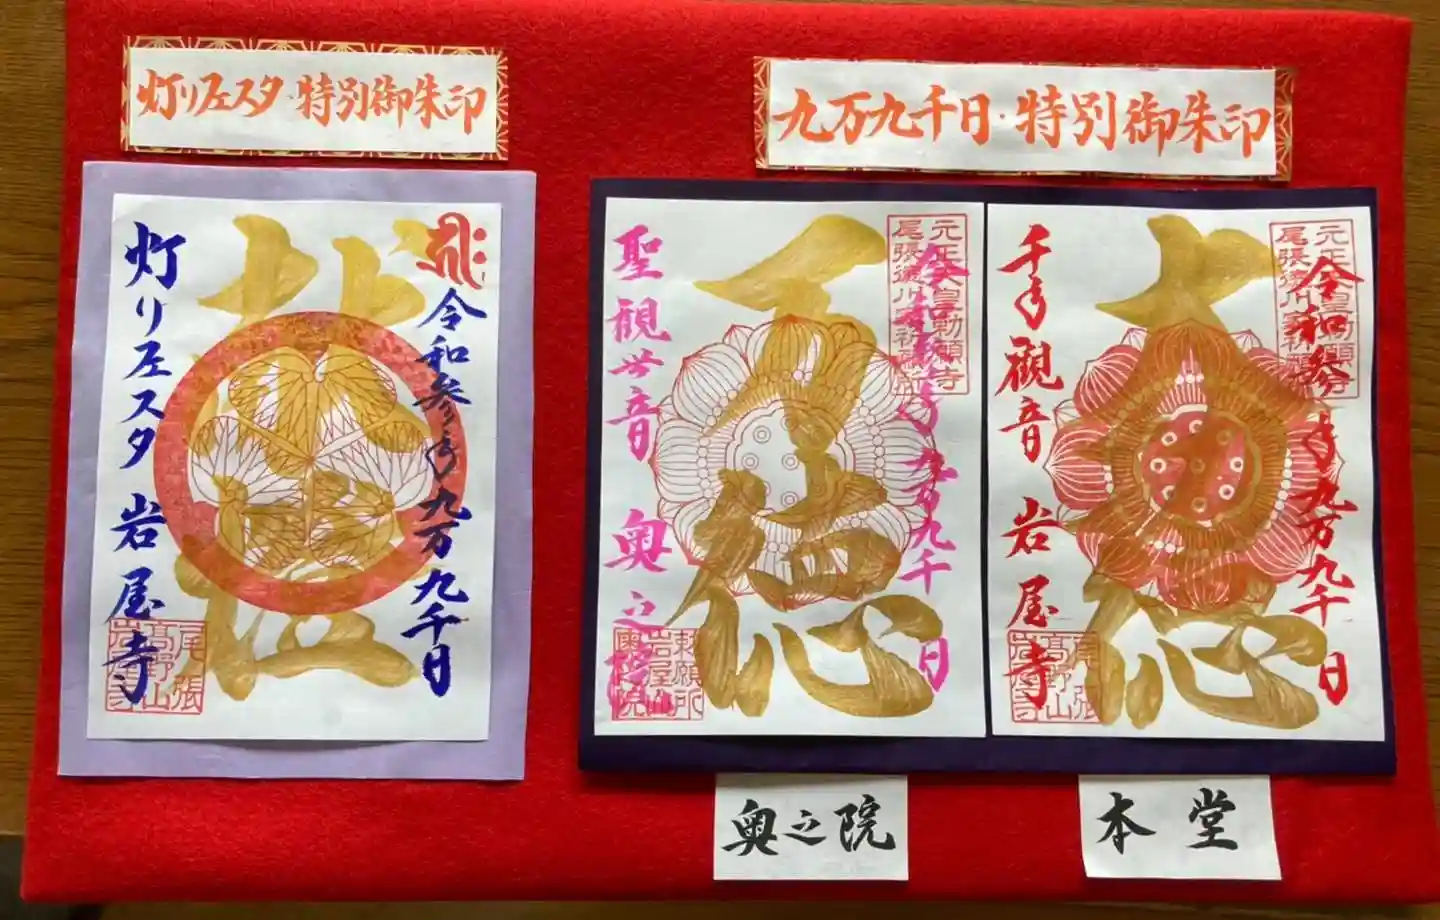 灯りフェスタ・特別御朱印
九万九千日・特別御朱印
令和参年九万九千日
灯りフェスタ 岩屋寺
尾張
高野山
岩屋寺
令和参年九万九千日
聖観世音 奥之院
元正天皇勅願寺
尾張徳川
勅願所
岩屋山
奥院
令和参年九万九千日
千手観音 岩屋寺
元正天皇勅願寺
尾張徳川
尾張
高野山
岩屋寺
奥之院
本堂